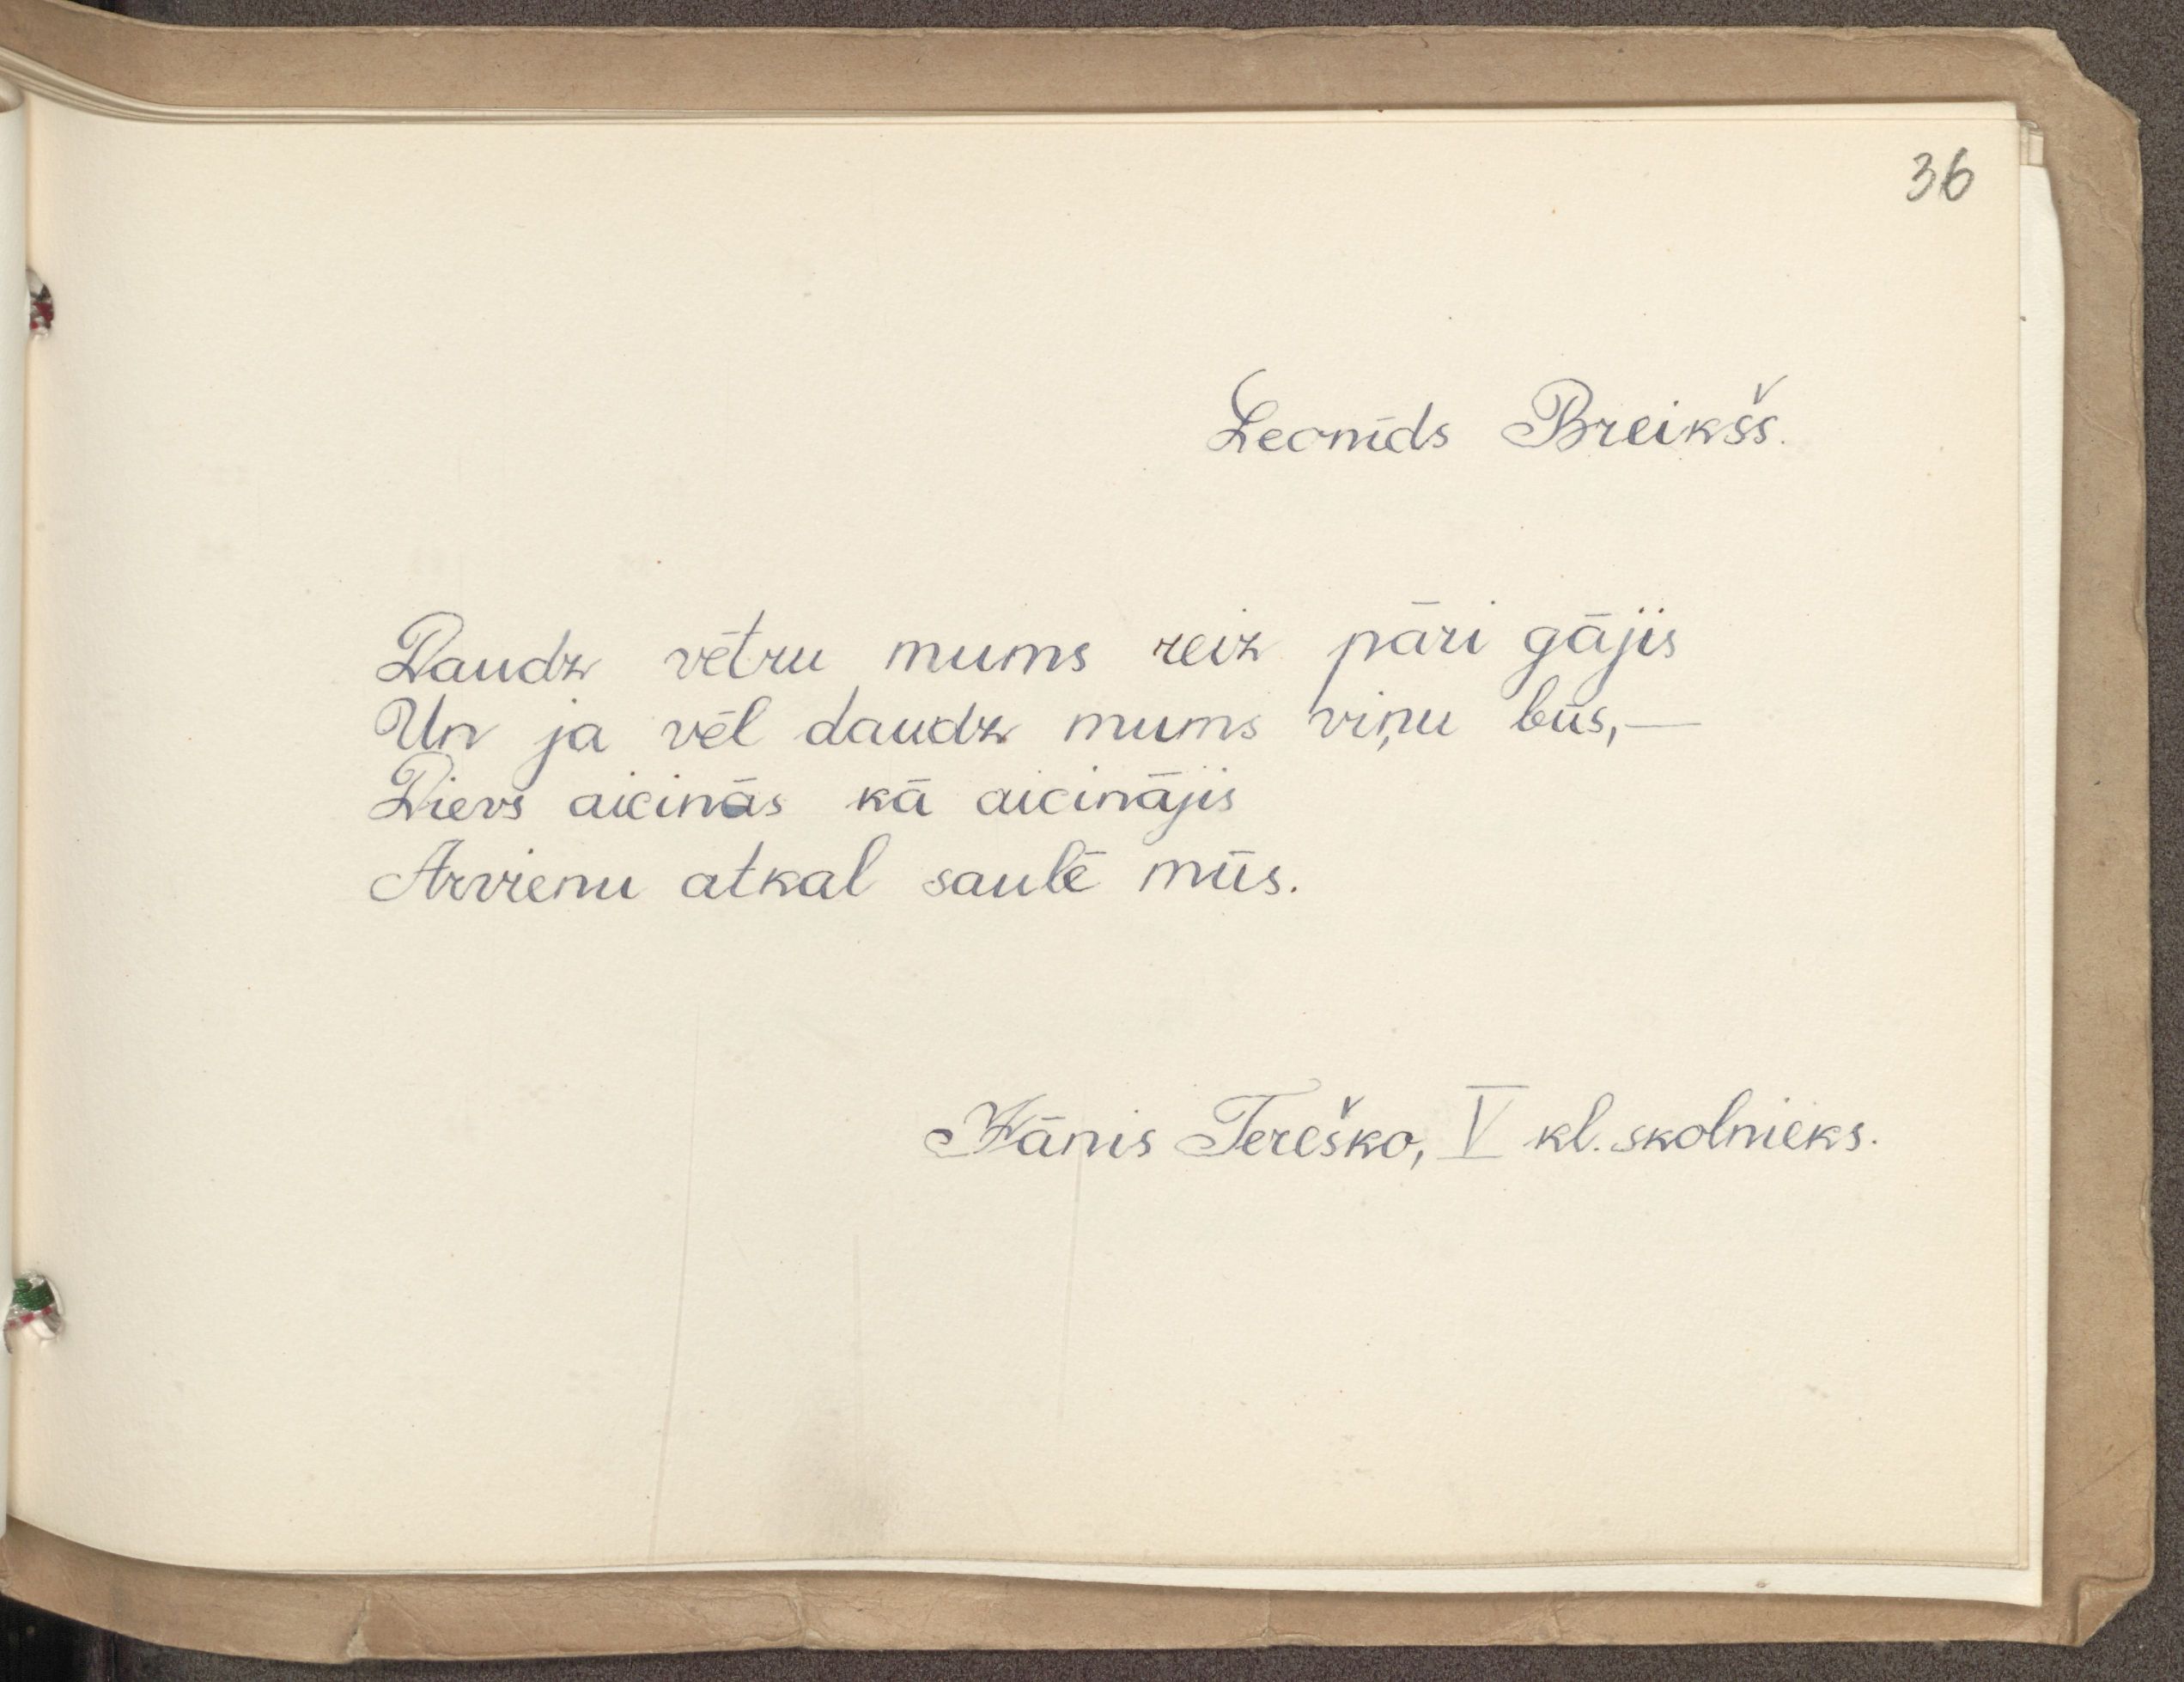 36
Leonīds Breikšs.
Daudz vētru mums reiz pāri gājis
Un ja vēl daudz mums viņu būs,—
Dievs aicinās kā aicinājis
Arvienu atkal saulē mūs.
Jānis Tereško, V kl. skolnieks.